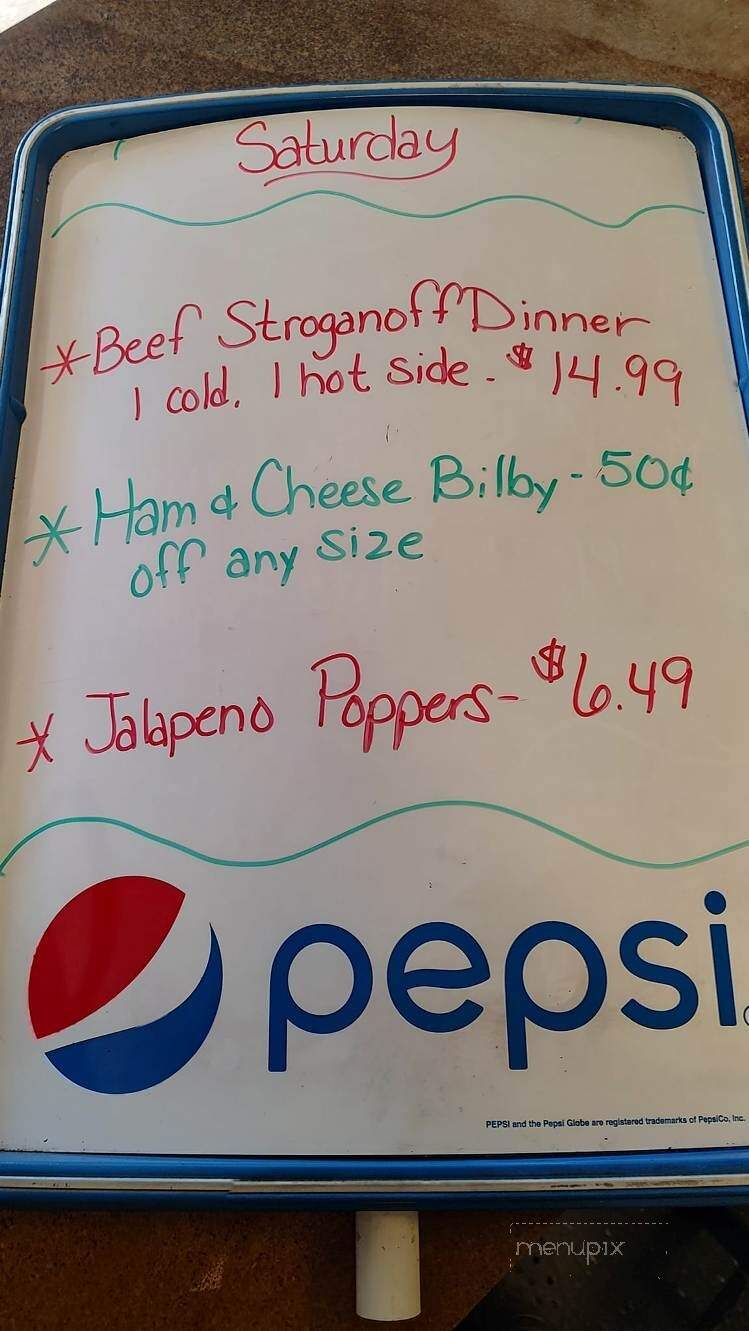 Saturday
*Beef Stroganoff Dinner
1 cold. 1 hot side - $14.99
* Ham & Cheese Bilby - 50¢
off any size
* Jalapeno Poppers - $6.49
pepsi
PEPSI and the Pepsi Globe are registered trademarks of PepsiCo, Inc.
menupix